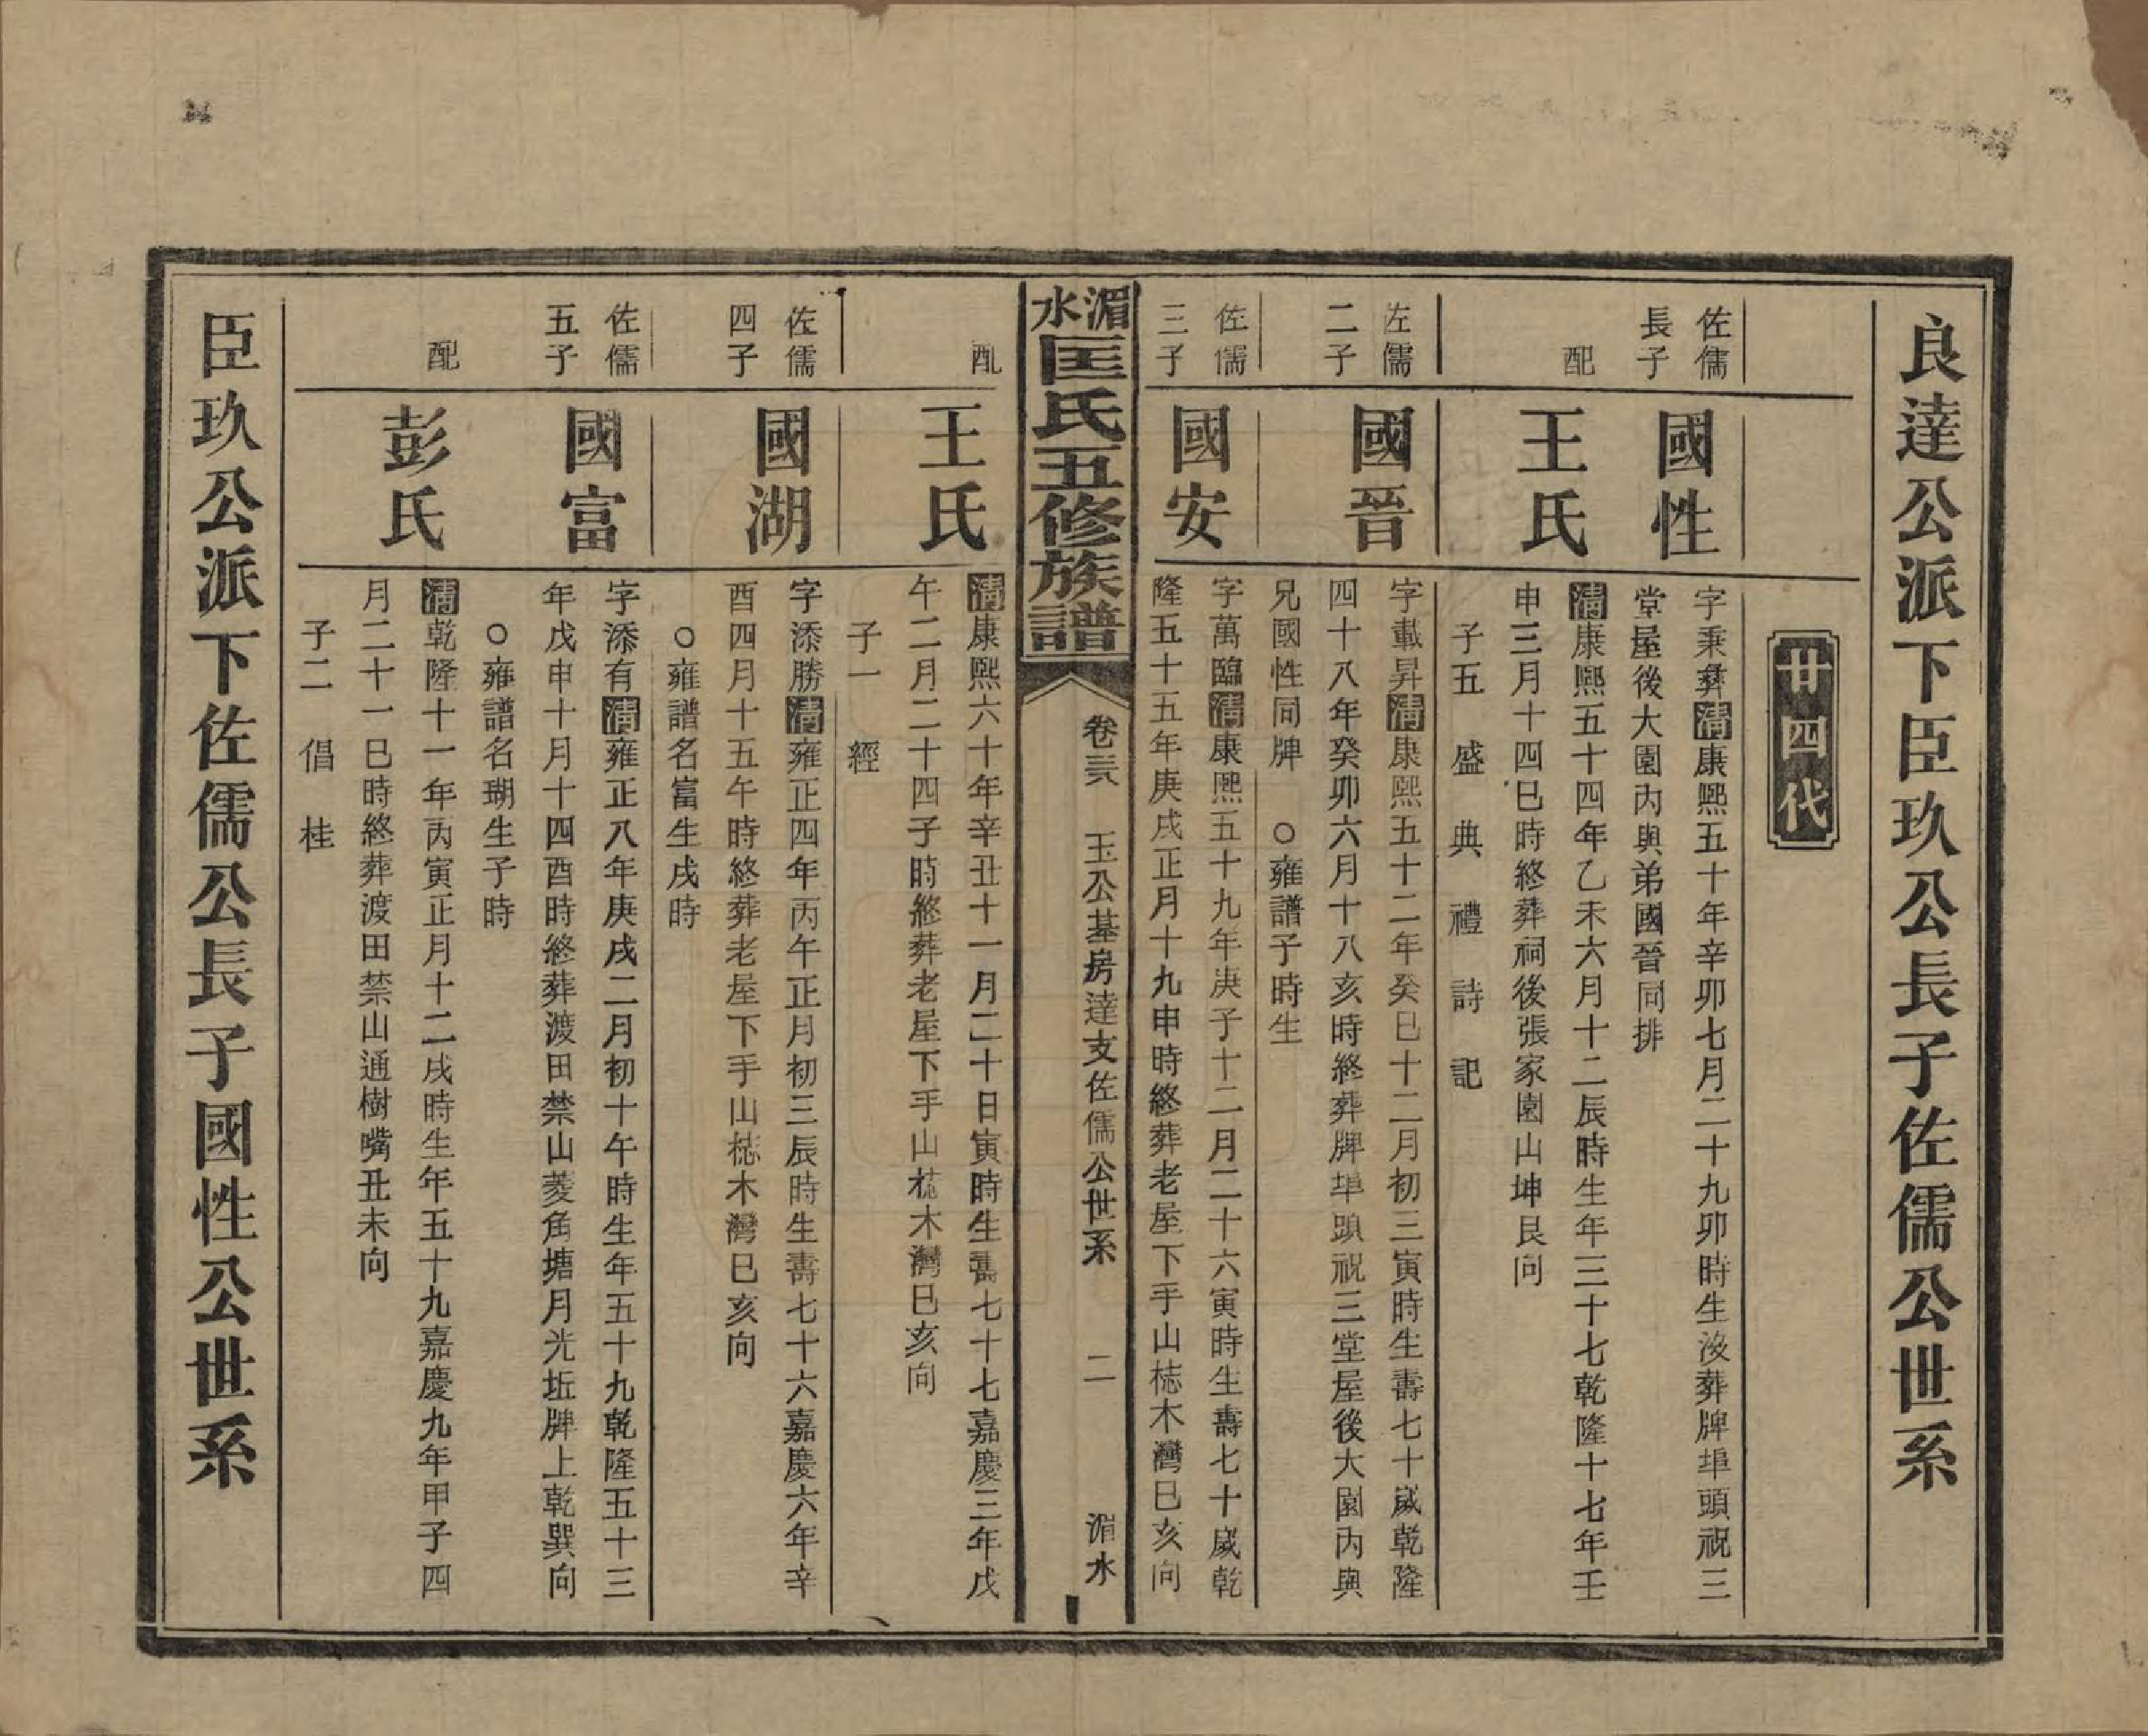 良達公派下臣玖公長子佐儒公世系
廿四代
佐儒
長子
國性
字秉彝清康熙五十年辛卯七月二十九卯時生歿葬牌埠頭祝三
堂屋後大園內與弟國晉同排
配
王氏
清康熙五十四年乙未六月十二辰時生年三十七乾隆十七年壬
申三月十四巳時終葬祠後張家園山坤艮向
子五 盛 典 禮 詩 記
佐儒
二子
國晉
字載昇清康熙五十二年癸巳十二月初三寅時生壽七十歲乾隆
四十八年癸卯六月十八亥時終葬牌埠頭祝三堂屋後大園內與
兄國性同牌 ○雍譜子時生
佐儒
三子
國安
字萬臨清康熙五十九年庚子十二月二十六寅時生壽七十歲乾
隆五十五年庚戌正月十九申時終葬老屋下手山梽木灣巳亥向
湄水匡氏五修族譜
卷三 玉公基房達支佐儒公世系 二 湄水
配
王氏
清康熙六十年辛丑十一月二十日寅時生壽七十七嘉慶三年戊
午二月二十四子時終葬老屋下手山梽木灣巳亥向
子一 經
佐儒
四子
國湖
字添勝清雍正四年丙午正月初三辰時生壽七十六嘉慶六年辛
酉四月十五午時終葬老屋下手山梽木灣巳亥向
○雍譜名富生戌時
佐儒
五子
國富
字添有清雍正八年庚戌二月初十午時生年五十九乾隆五十三
年戊申十月十四酉時終葬渡田禁山菱角塘月光坵牌上乾巽向
○雍譜名瑚生子時
配
彭氏
清乾隆十一年丙寅正月十二戌時生年五十九嘉慶九年甲子四
月二十一巳時終葬渡田禁山通樹嘴丑未向
子二 倡 桂
臣玖公派下佐儒公長子國性公世系